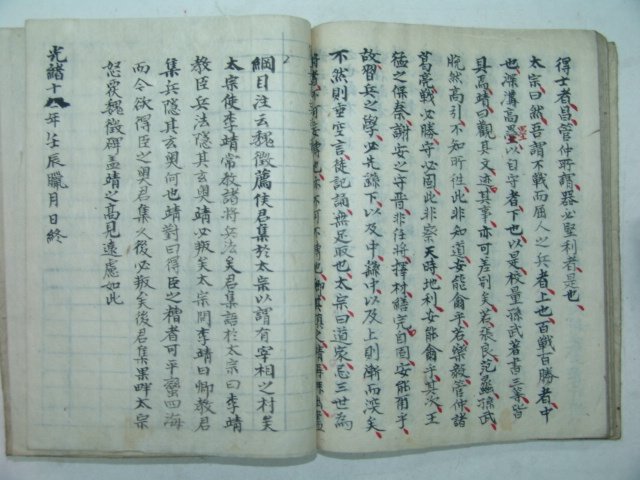 得士者昌管仲所謂器必堅利者是也
太宗曰然吾謂不戰而屈人之兵者上也百戰百勝者中
也深溝高墨以自守者下也以是校量孫武著書三等皆
具焉靖曰觀其文迹其事亦可差別矣若張良范蠡孫武
脫然高引不知所徃此非知道安能爾乎若樂毅管仲諸
葛亮戰必勝守必固此非察天時地利安能爾乎其次王
猛之保秦謝安之守晉非任將擇材繕完自固安能爾乎
故習兵之學必先繇下以及中繇中以及上則漸而深矣
不然則垂空言徒記誦無足取也太宗曰道家忌三世為
也亦不可不傳也卿其愼之靖再拜
綱目注云魏徵薦侯君集於太宗以謂有宰相之材矣
太宗使李靖常敎諸將兵法矣君集語於太宗曰李靖
敎臣兵法隱其玄奧靖必叛矣太宗問李靖曰卿敎君
集兵隱其玄奧何也靖對曰得臣之糟者可平蠻四海
而今欲得臣之奧君集久後必叛矣後君集果畔太宗
怒魏徵碑盖靖之高見遠慮如此
光緖十八年壬辰臘月日終